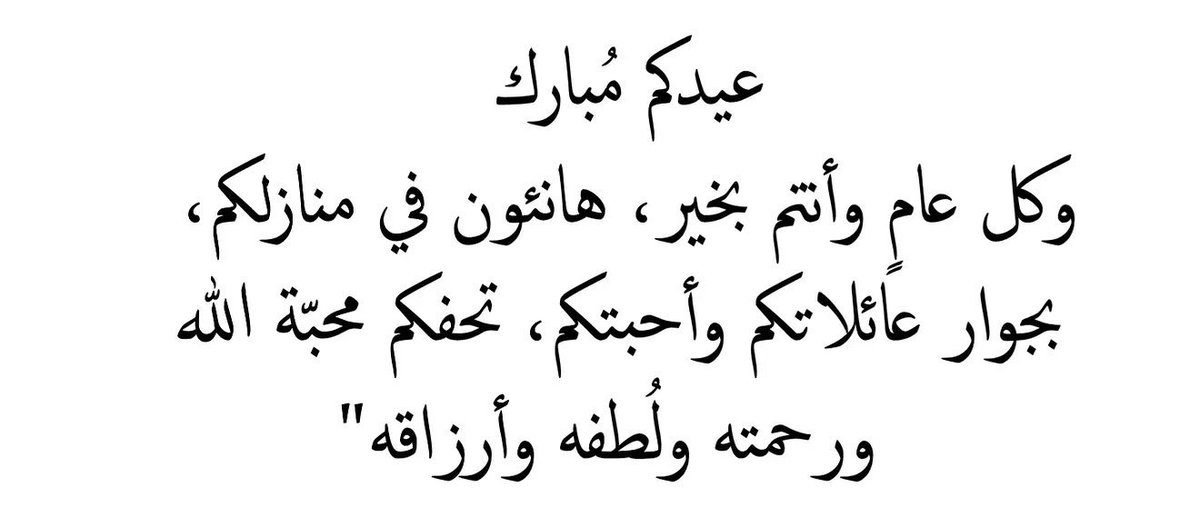 عيدكم مُبارك
وكل عامٍ وأنتم بخير، هانئون في منازلكم،
بجوار عائلاتكم وأحبتكم، تحفكم محبّة الله
ورحمته ولُطفه وأرزاقه"